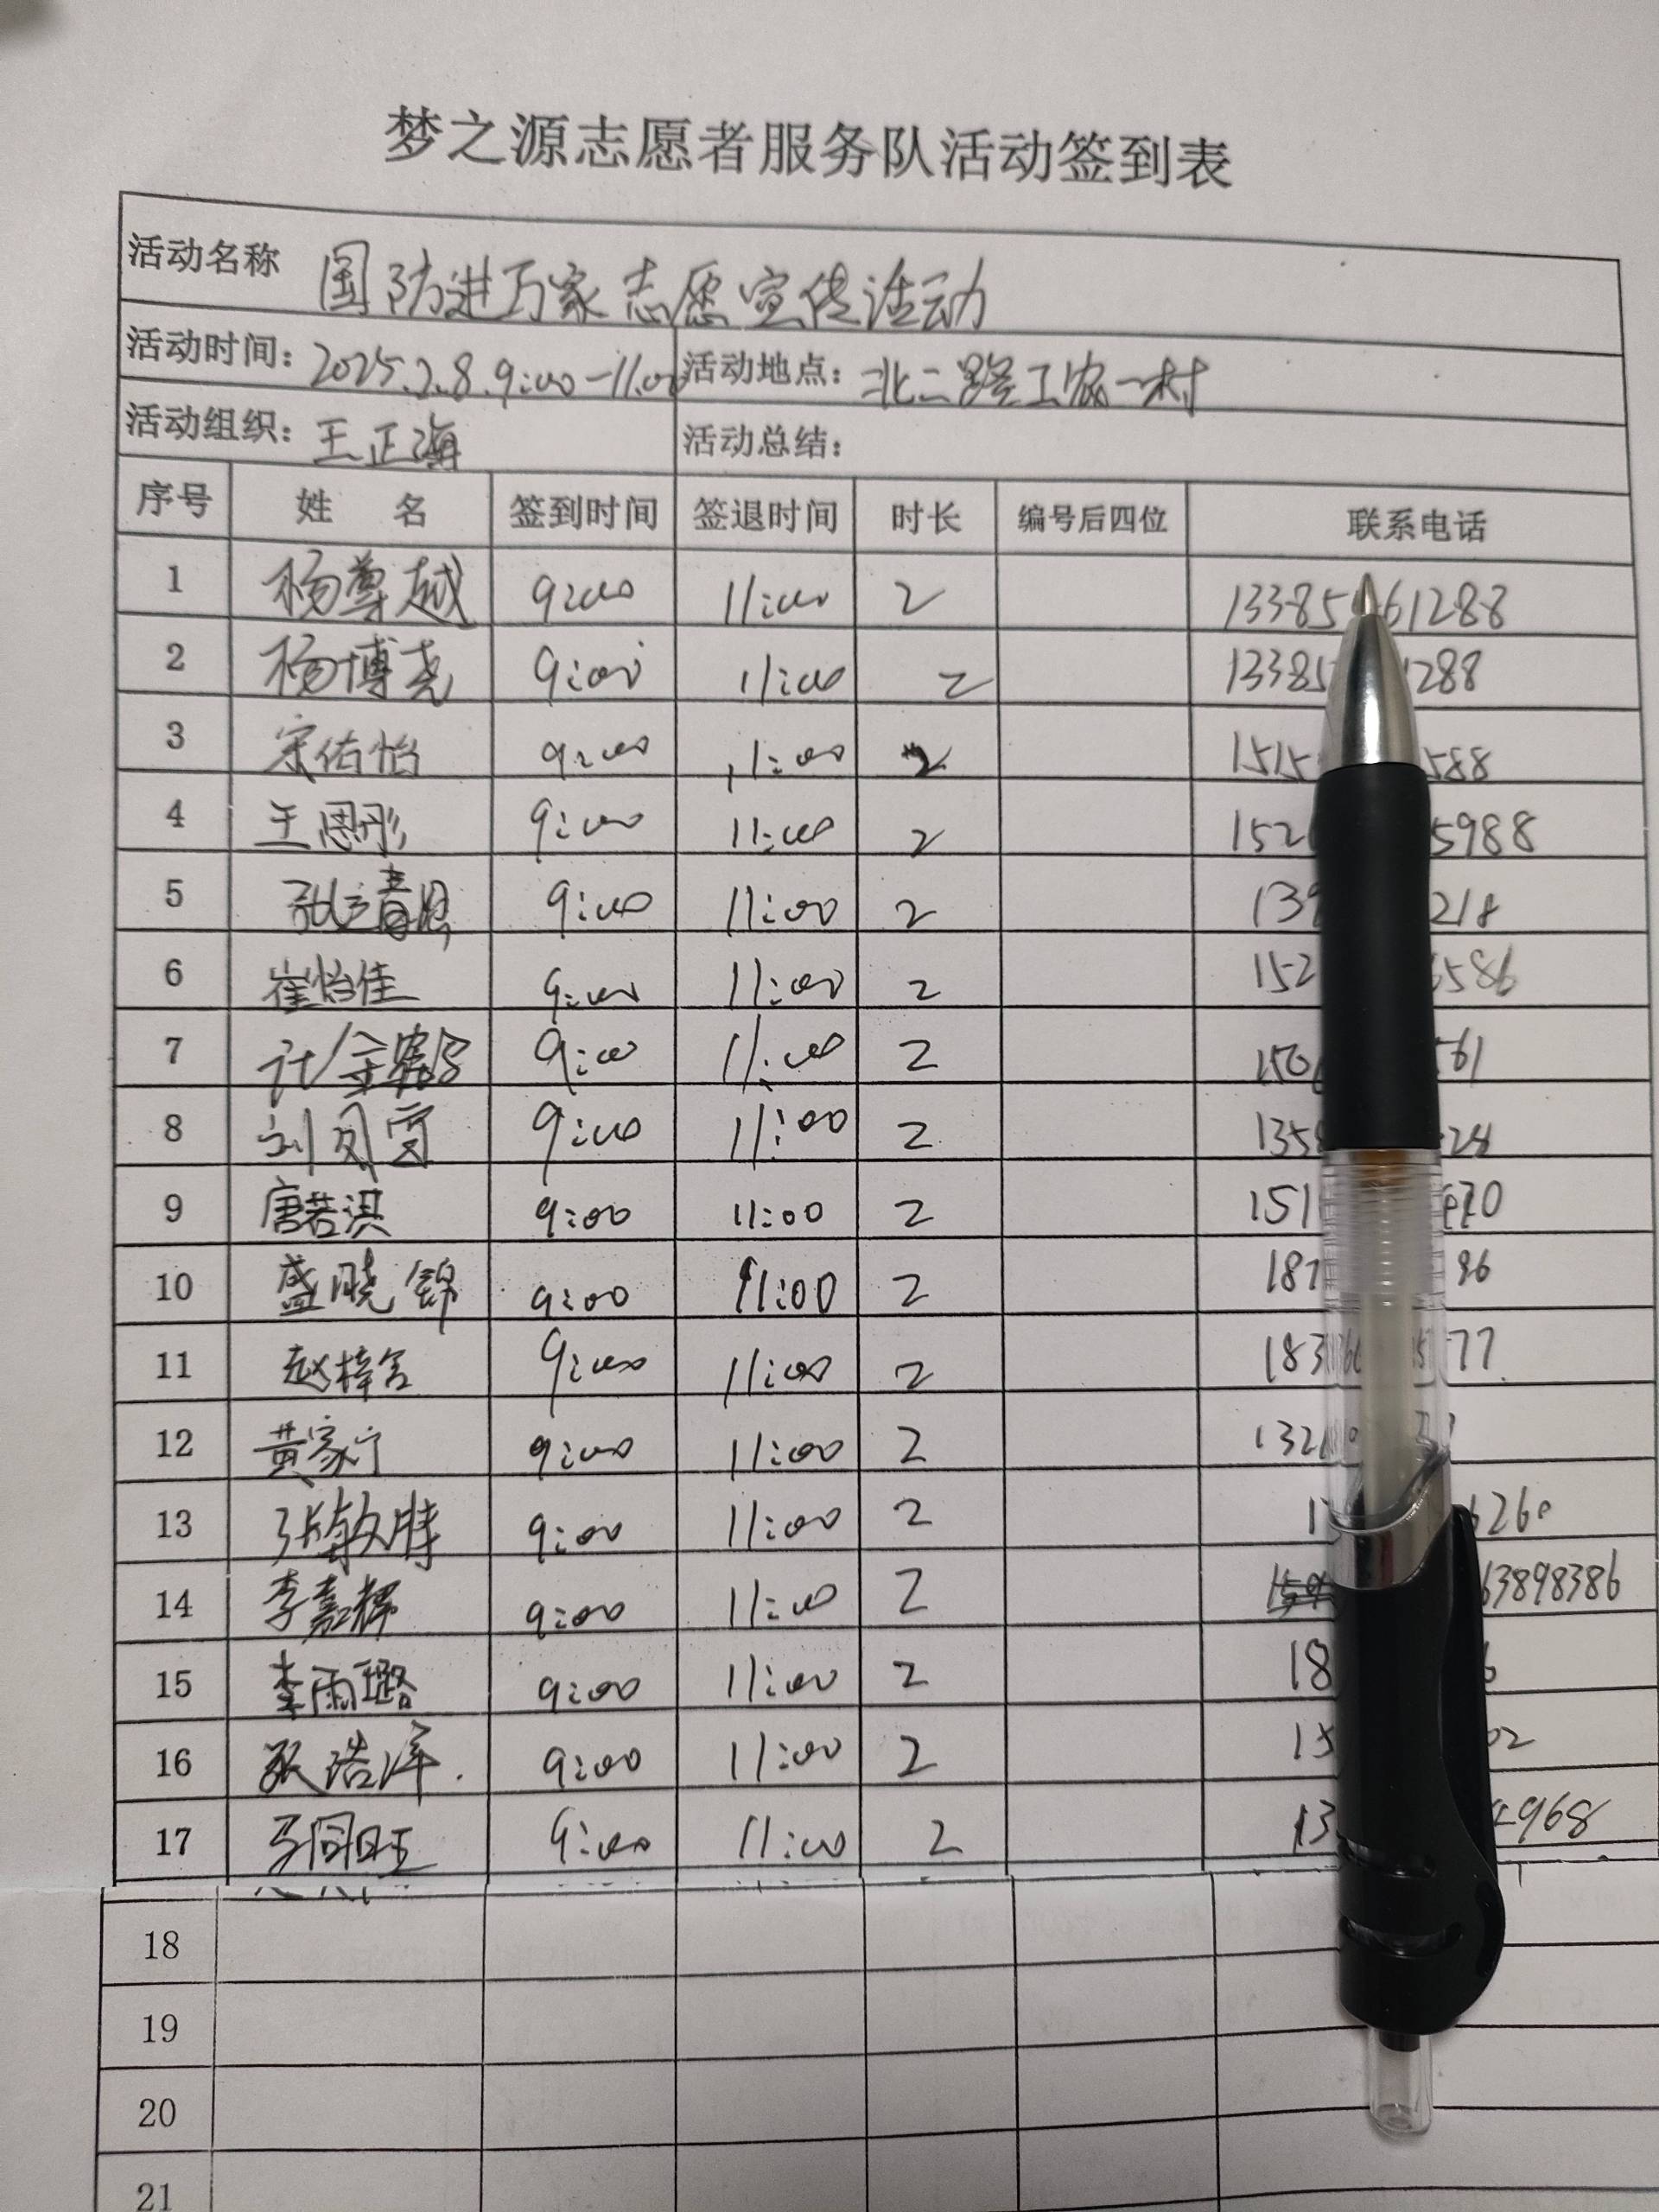 梦之源志愿者服务队活动签到表
活动名称 国防进万家志愿宣传活动
活动时间：2025.2.8.9:00-11:00 活动地点：北二路工农一村
活动组织：王正海 活动总结：
序号 姓 名 签到时间 签退时间 时长 编号后四位 联系电话
1 杨尊越 9:00 11:00 2 13385 61288
2 杨博尧 9:00 11:00 2 1338 288
3 宋佑怡 9:00 11:00 2 1515 588
4 王思彤 9:00 11:00 2 152 5988
5 9:00 11:00 2 139 218
6 崔怡佳 9:00 11:00 2 152 586
7 计 9:00 11:00 2 150 561
8 刘 9:00 11:00 2 135 28
9 唐若淇 9:00 11:00 2 151 70
10 盛晓锦 9:00 11:00 2 187 96
11 赵梓含 9:00 11:00 2 183 77
12 黄家宁 9:00 11:00 2 132
13 张敏 9:00 11:00 2 1 260
14 李嘉辉 9:00 11:00 2 63898386
15 李雨璐 9:00 11:00 2 18 6
16 浩洋 9:00 11:00 2 15 02
17 马同旺 9:00 11:00 2 13 4968
18
19
20
21